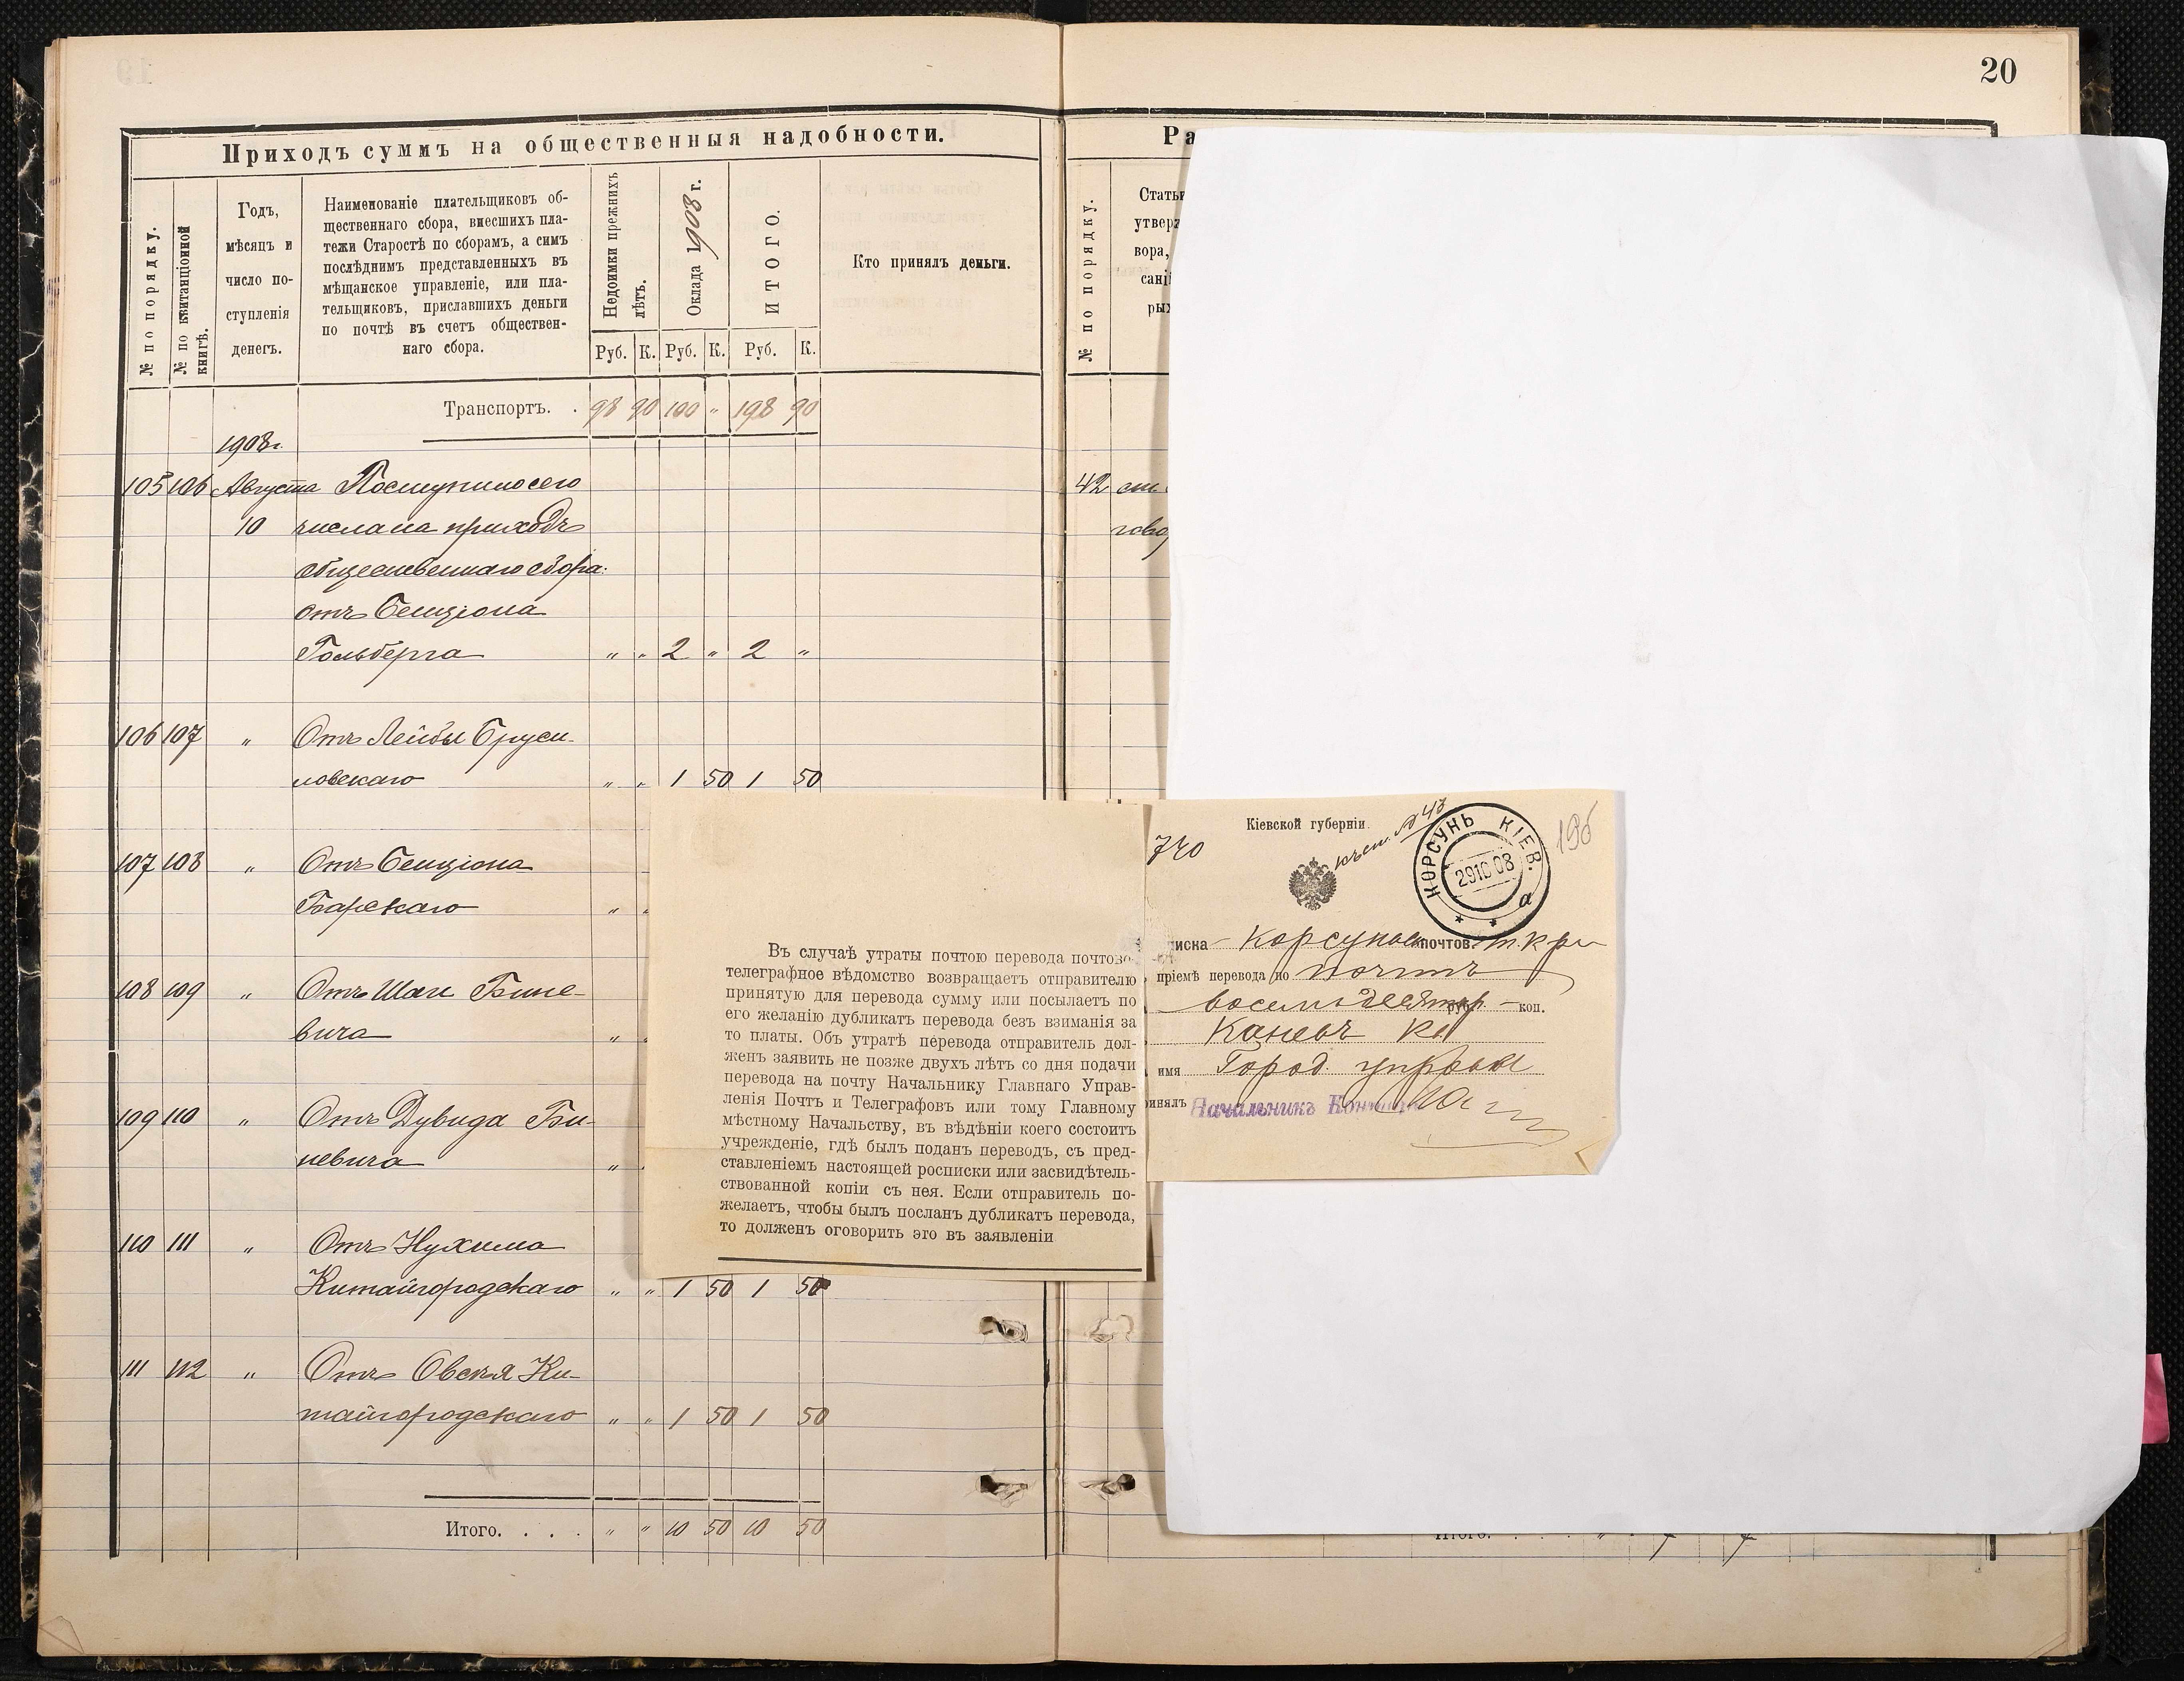 20
Приходъ суммъ на общественныя надобности.
№ по порядку.
№ по квитанціонной книгѣ.
Годъ,
мѣсяцъ и
число по-
ступленія
денегъ.
Наименованіе плательщиковъ об-
щественнаго сбора, внесшихъ пла-
тежи Старостѣ по сборамъ, а симъ
послѣднимъ представленныхъ въ
мѣщанское управленіе, или пла-
тельщиковъ, приславшихъ деньги
по почтѣ въ счетъ обществен-
наго сбора.
Недоимки прежнихъ лѣтъ.
Оклада 1908 г.
ИТОГО.
Кто принялъ деньги.
Руб. К. Руб. К. Руб. К.
Транспортъ. . 98 90 100 " 198 90
1908г.
105 106 Августа Поступило сего
10 числа на приходъ
общественнаго сбора:
отъ Бенціона
Гольберга " " 2 " 2 "
106 107 " Отъ Лейбы Бруси-
ловскаго " " 1 50 1 50
107 108 " Отъ Бенціона
Барскаго " "
108 109 " Отъ Шаи Бине-
вича " "
109 110 " Отъ Дувида Би-
невича " "
110 111 " Отъ Нухима
Китайгородскаго " " 1 50 1 50
111 112 " Отъ Овсея Ки-
тайгородскаго " " 1 50 1 50
Итого. . . . " " 10 50 10 50
Въ случаѣ утраты почтою перевода почтово-
телеграфное вѣдомство возвращаетъ отправителю
принятую для перевода сумму или посылаетъ по
его желанію дубликатъ перевода безъ взиманія за
то платы. Объ утратѣ перевода отправитель дол-
женъ заявить не позже двухъ лѣтъ со дня подачи
перевода на почту Начальнику Главнаго Управ-
ленія Почтъ и Телеграфовъ или тому Главному
мѣстному Начальству, въ вѣдѣніи коего состоитъ
учрежденіе, гдѣ былъ поданъ переводъ, съ пред-
ставленіемъ настоящей росписки или засвидѣтель-
ствованной копіи съ нея. Если отправитель по-
желаетъ, чтобы былъ посланъ дубликатъ перевода,
то долженъ оговорить эго въ заявленіи
Ра
№ по порядку.
Статьи
утверж
вора,
сані
рых
42 ст
гово
Кіевской губерніи.
740
№ 43
КОРСУНЬ КІЕВ.
291008
а
иска Корсунь почтов.
пріемѣ перевода по почтѣ
восемьдесят р. — коп.
Каневъ
имя Город. управы
инялъ Начальникъ Конторы
Итого.